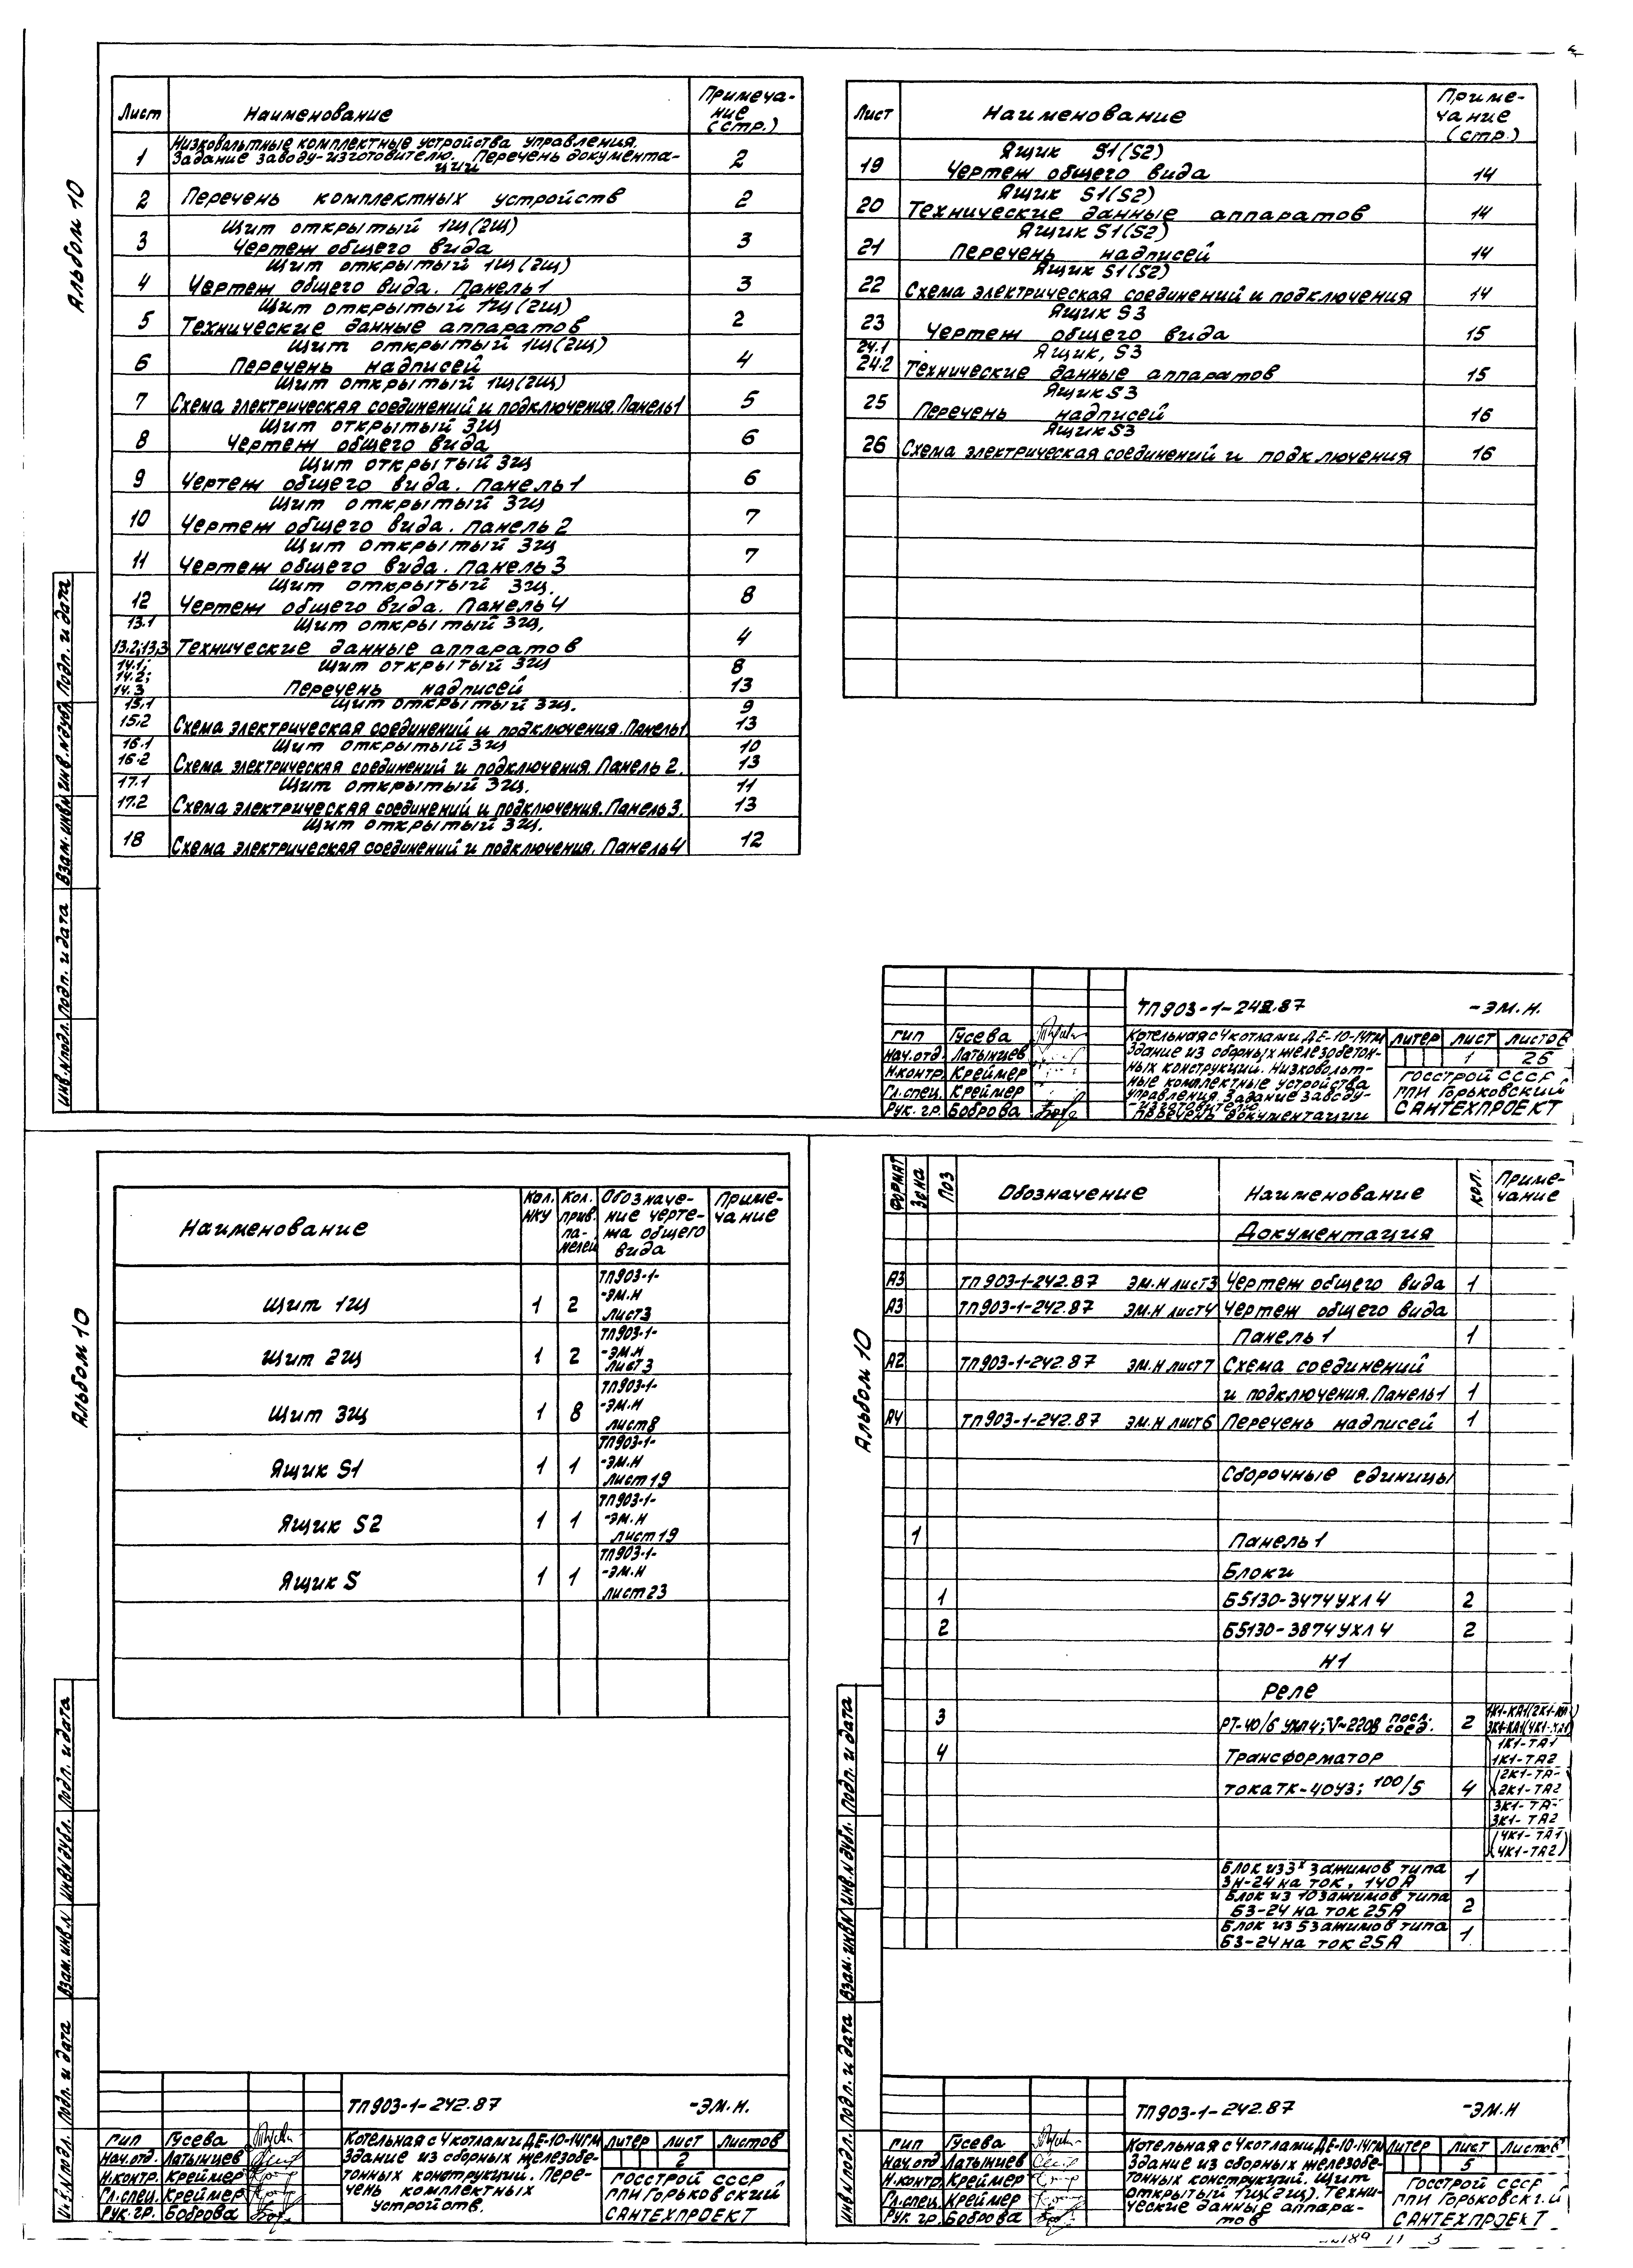 Альбом 10
Лист Наименование Примеча-
ние
(стр.)
Низковольтные комплектные устройства управления.
1 Задание заводу-изготовителю. Перечень документа- 2
ции
2 Перечень комплектных устройств 2
Щит открытый 1Щ(2Щ)
3 Чертеж общего вида 3
Щит открытый 1Щ(2Щ)
4 Чертеж общего вида. Панель 1 3
Щит открытый 1Щ(2Щ)
5 Технические данные аппаратов 2
Щит открытый 1Щ(2Щ)
6 Перечень надписей 4
Щит открытый 1Щ(2Щ)
7 Схема электрическая соединений и подключения. Панель 1 5
Щит открытый 3Щ
8 Чертеж общего вида 6
Щит открытый 3Щ
9 Чертеж общего вида. Панель 1 6
Щит открытый 3Щ
10 Чертеж общего вида. Панель 2 7
Щит открытый 3Щ
11 Чертеж общего вида. Панель 3 7
Щит открытый 3Щ.
12 Чертеж общего вида. Панель 4 8
13.1 Щит открытый 3Щ,
13.2;13.3 Технические данные аппаратов 4
14.1; Щит открытый 3Щ 8
14.2;
14.3 Перечень надписей 13
15.1 Щит открытый 3Щ. 9
15.2 Схема электрическая соединений и подключения. Панель 1 13
16.1 Щит открытый 3Щ 10
16.2 Схема электрическая соединений и подключения. Панель 2. 13
17.1 Щит открытый 3Щ. 11
17.2 Схема электрическая соединений и подключения. Панель 3. 13
Щит открытый 3Щ.
18 Схема электрическая соединений и подключения. Панель 4 12
Лист Наименование Приме-
чание
(стр.)
Ящик S1(S2)
19 Чертеж общего вида 14
Ящик S1(S2)
20 Технические данные аппаратов 14
Ящик S1(S2)
21 Перечень надписей 14
Ящик S1(S2)
22 Схема электрическая соединений и подключения 14
Ящик S3
23 Чертеж общего вида 15
24.1 Ящик, S3
24.2 Технические данные аппаратов 15
Ящик S3
25 Перечень надписей 16
Ящик S3
26 Схема электрическая соединений и подключения 16
Инв.№подл. Подп. и дата Взам. инв№ Инв.№дубл. Подп. и дата
ТП903-1-242.87 -ЭМ.Н.
ГИП Гусева
Нач.отд. Латынцев
Н.контр. Креймер
Гл.спец. Креймер
Рук. гр. Боброва
Котельная с 4 котлами ДЕ-10-14ГМ
Здание из сборных железобетон-
ных конструкций. Низковольт-
ные комплектные устройства
управления. Задание заводу-
-изготовителю.
Перечень документации
Литер Лист Листов
1 26
Госстрой СССР
ГПИ Горьковский
САНТЕХПРОЕКТ
Альбом 10
Наименование Кол. НКУ Кол. прив. па-нелей Обозначе-ние черте-жа общего вида Приме-чание
ТП903-1-
Щит 1Щ 1 2 -ЭМ.Н
лист3
ТП903-1-
Щит 2Щ 1 2 -ЭМ.Н
лист3
ТП903-1-
Щит 3Щ 1 8 -ЭМ.Н
лист8
ТП903-1-
Ящик S1 1 1 -ЭМ.Н
лист19
ТП903-1-
Ящик S2 1 1 -ЭМ.Н
лист19
ТП903-1-
Ящик S 1 1 -ЭМ.Н
лист23
Подп. и дата Взам. инв.№ Инв№дубл. Подп. и дата
ТП903-1-242.87 -ЭМ.Н.
ГИП Гусева
Нач.отд. Латынцев
Н.контр. Креймер
Гл.спец. Креймер
Рук. гр. Боброва
Котельная с 4 котлами ДЕ-10-14ГМ
Здание из сборных железобе-
тонных конструкций. Пере-
чень комплектных
устройств.
Литер Лист Листов
2
Госстрой СССР
ГПИ Горьковский
САНТЕХПРОЕКТ
Альбом 10
Формат Зона Поз Обозначение Наименование Кол. Приме-чание
Документация
А3 ТП903-1-242.87 ЭМ.Н лист3 Чертеж общего вида 1
А3 ТП903-1-242.87 ЭМ.Н лист4 Чертеж общего вида
Панель 1 1
А2 ТП903-1-242.87 ЭМ.Н лист7 Схема соединений
и подключения. Панель 1 1
А4 ТП903-1-242.87 ЭМ.Н лист6 Перечень надписей 1
Сборочные единицы
1 Панель 1
Блоки
1 Б5130-3474УХЛ4 2
2 Б5130-3874УХЛ4 2
Н1
Реле
3 РТ-40/6 УХЛ4; V~220В посл. соед. 2
4 Трансформатор 1К1-ТА1
1К1-ТА2
тока ТК-40У3; 100/5 4 2К1-ТА2
3К1-ТА2
(4К1-ТА1
4К1-ТА2)
Блок из 3х зажимов типа
ЗН-24 на ток, 140А 1
Блок из 10 зажимов типа
БЗ-24 на ток 25А 2
Блок из 5 зажимов типа
БЗ-24 на ток 25А 1
Инв№подл. Подп. и дата Взам. инв№ Инв.№дубл. Подп. и дата
ТП903-1-242.87 -ЭМ.Н
ГИП Гусева
Нач.отд Латынцев
Н.контр. Креймер
Гл.спец. Креймер
Рук. гр. Боброва
Котельная с 4 котлами ДЕ-10-14ГМ
Здание из сборных железобе-
тонных конструкций. Щит
открытый 1Щ(2Щ). Техни-
ческие данные аппара-
тов
Литер Лист Листов
5
Госстрой СССР
ГПИ Горьковский
САНТЕХПРОЕКТ